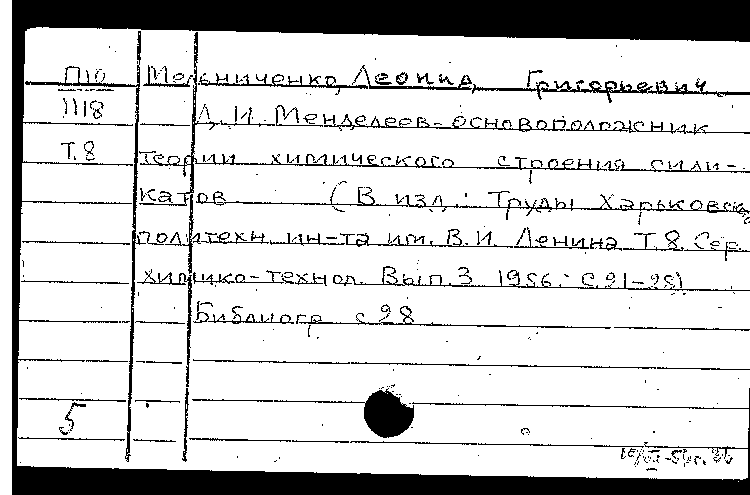 П10 Мельниченко, Леонид Григорьевич.
1118 Д. И. Менделеев-основоположник
Т.8 теории химического строения сили-
катов (В изд.: Труды Харьковск.
политехн. ин-та им. В. И. Ленина Т. 8. Сер.
химико-технол. Вып. 3 1956. с. 21-28)
Библиогр с 28
5